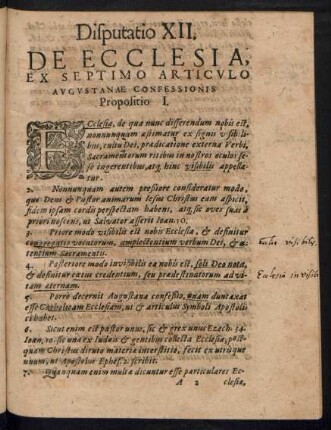 Disputatio XII.
DE ECCLESIA,
EX SEPTIMO ARTICVLO
AVGVSTANAE CONFESSIONIS
Propositio I.
ECclesia, de qua nunc differendum nobis est,
nonnunquam æstimatur ex signis visibili-
bus, cultu Dei, prædicatione externa Verbi,
Sacramentorum ritibus in nostros oculos sese
ingerentibus, atq; hinc visibilis appella-
tur.
2. Nonnunquam autem pressiore consideratur modo,
quo Deus & Pastor animarum Iesus Christus eam aspicit,
fidem ipsam cordis perspectam habens, atq; sic oves suas à
priori nescient, ut Salvator asserit Ioan. 10.
Priore modo visibilis est nobis Ecclesia, & definitur
congregatio vocatorum, amplectentium verbum Dei, & u-
tentium Sacramentis.
4. Posteriore modo invisibilis ea nobis est, soli Deo nota,
& definitur cœtus credentium, seu prædestinatorum ad vi-
tam æternam.
5. Porrò decernit Augustana confessio, unam duntaxat
esse Catholicam Ecclesiam, ut & articulus Symboli Apostoli-
ci habet.
6. Sicut enim est pastor unus, sic & grex unus Ezech. 34.
Ioan. 10. sic una ex Iudæis & gentibus collecta Ecclesia, post-
quam Christus diruto materie interstitio, fecit ex utrisque
unum, ut Apostolus Ephes. 2. scribit.
7. Quanquam enim multæ dicuntur esse particulares Ec-
A 2 clesiæ,
Ecclesia visibilis.
Ecclesia invisib